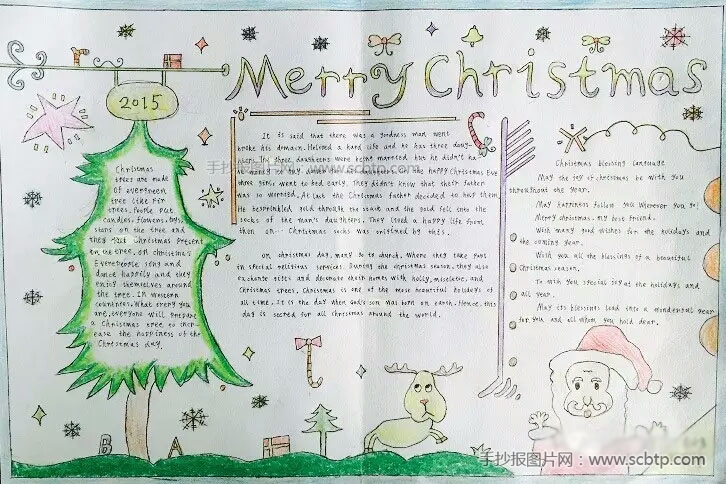 Merry Christmas
2015
Christmas
trees are made
of evergreen
tree like fir
trees. People put
candles, flowers, toys,
stars on the tree and
they put Christmas present
on the tree. on Christmas
Eve people sing and
dance happily and they
enjoy themselves around
the tree. In western
countries, What every you
are, everyone will prepare
a Christmas tree to incr-
ease the happiness of the
Christmas day.
It is said that there was a goodness man went
broke his domain. He lived a hard life and he has three daug-
hters. three daughters were being married, but he didn't ha-
the happy Christmas Eve
three girls went to bed early. They didn't know that their father
was so worried. At last the Christmas father decided to help them.
He besprinkled gold through the and the gold fell into the
socks of the man's daughters. They lived a happy life from
then on… Christmas socks was by this.
on christmas day, many go to church. Where they take part
in special religious services. During the christmas season, they also
exchange gifts and decorate their homes with holly, misceltoe, and
Christmas trees. Christmas is one of the most beautiful holidays of
all time. It is the day when God's son was born on earth. Hence, this
day is sacred for all christmas around the world.
Christmas blessing language
May the joy of christmas be with you
throughout the year.
May happiness follow you wherever you go!
Merry christmas, my best friend.
With many good wishes for the holidays and
the coming year.
Wish you all the blessings of a beautiful
Christmas season.
To wish you special joy at the holidays and
all year.
May its blessings lead into a wonderful year
for you and all whom you hold dear.
B A
手抄报图片网 www.scbtp.com
手抄报图片网：www.scbtp.com